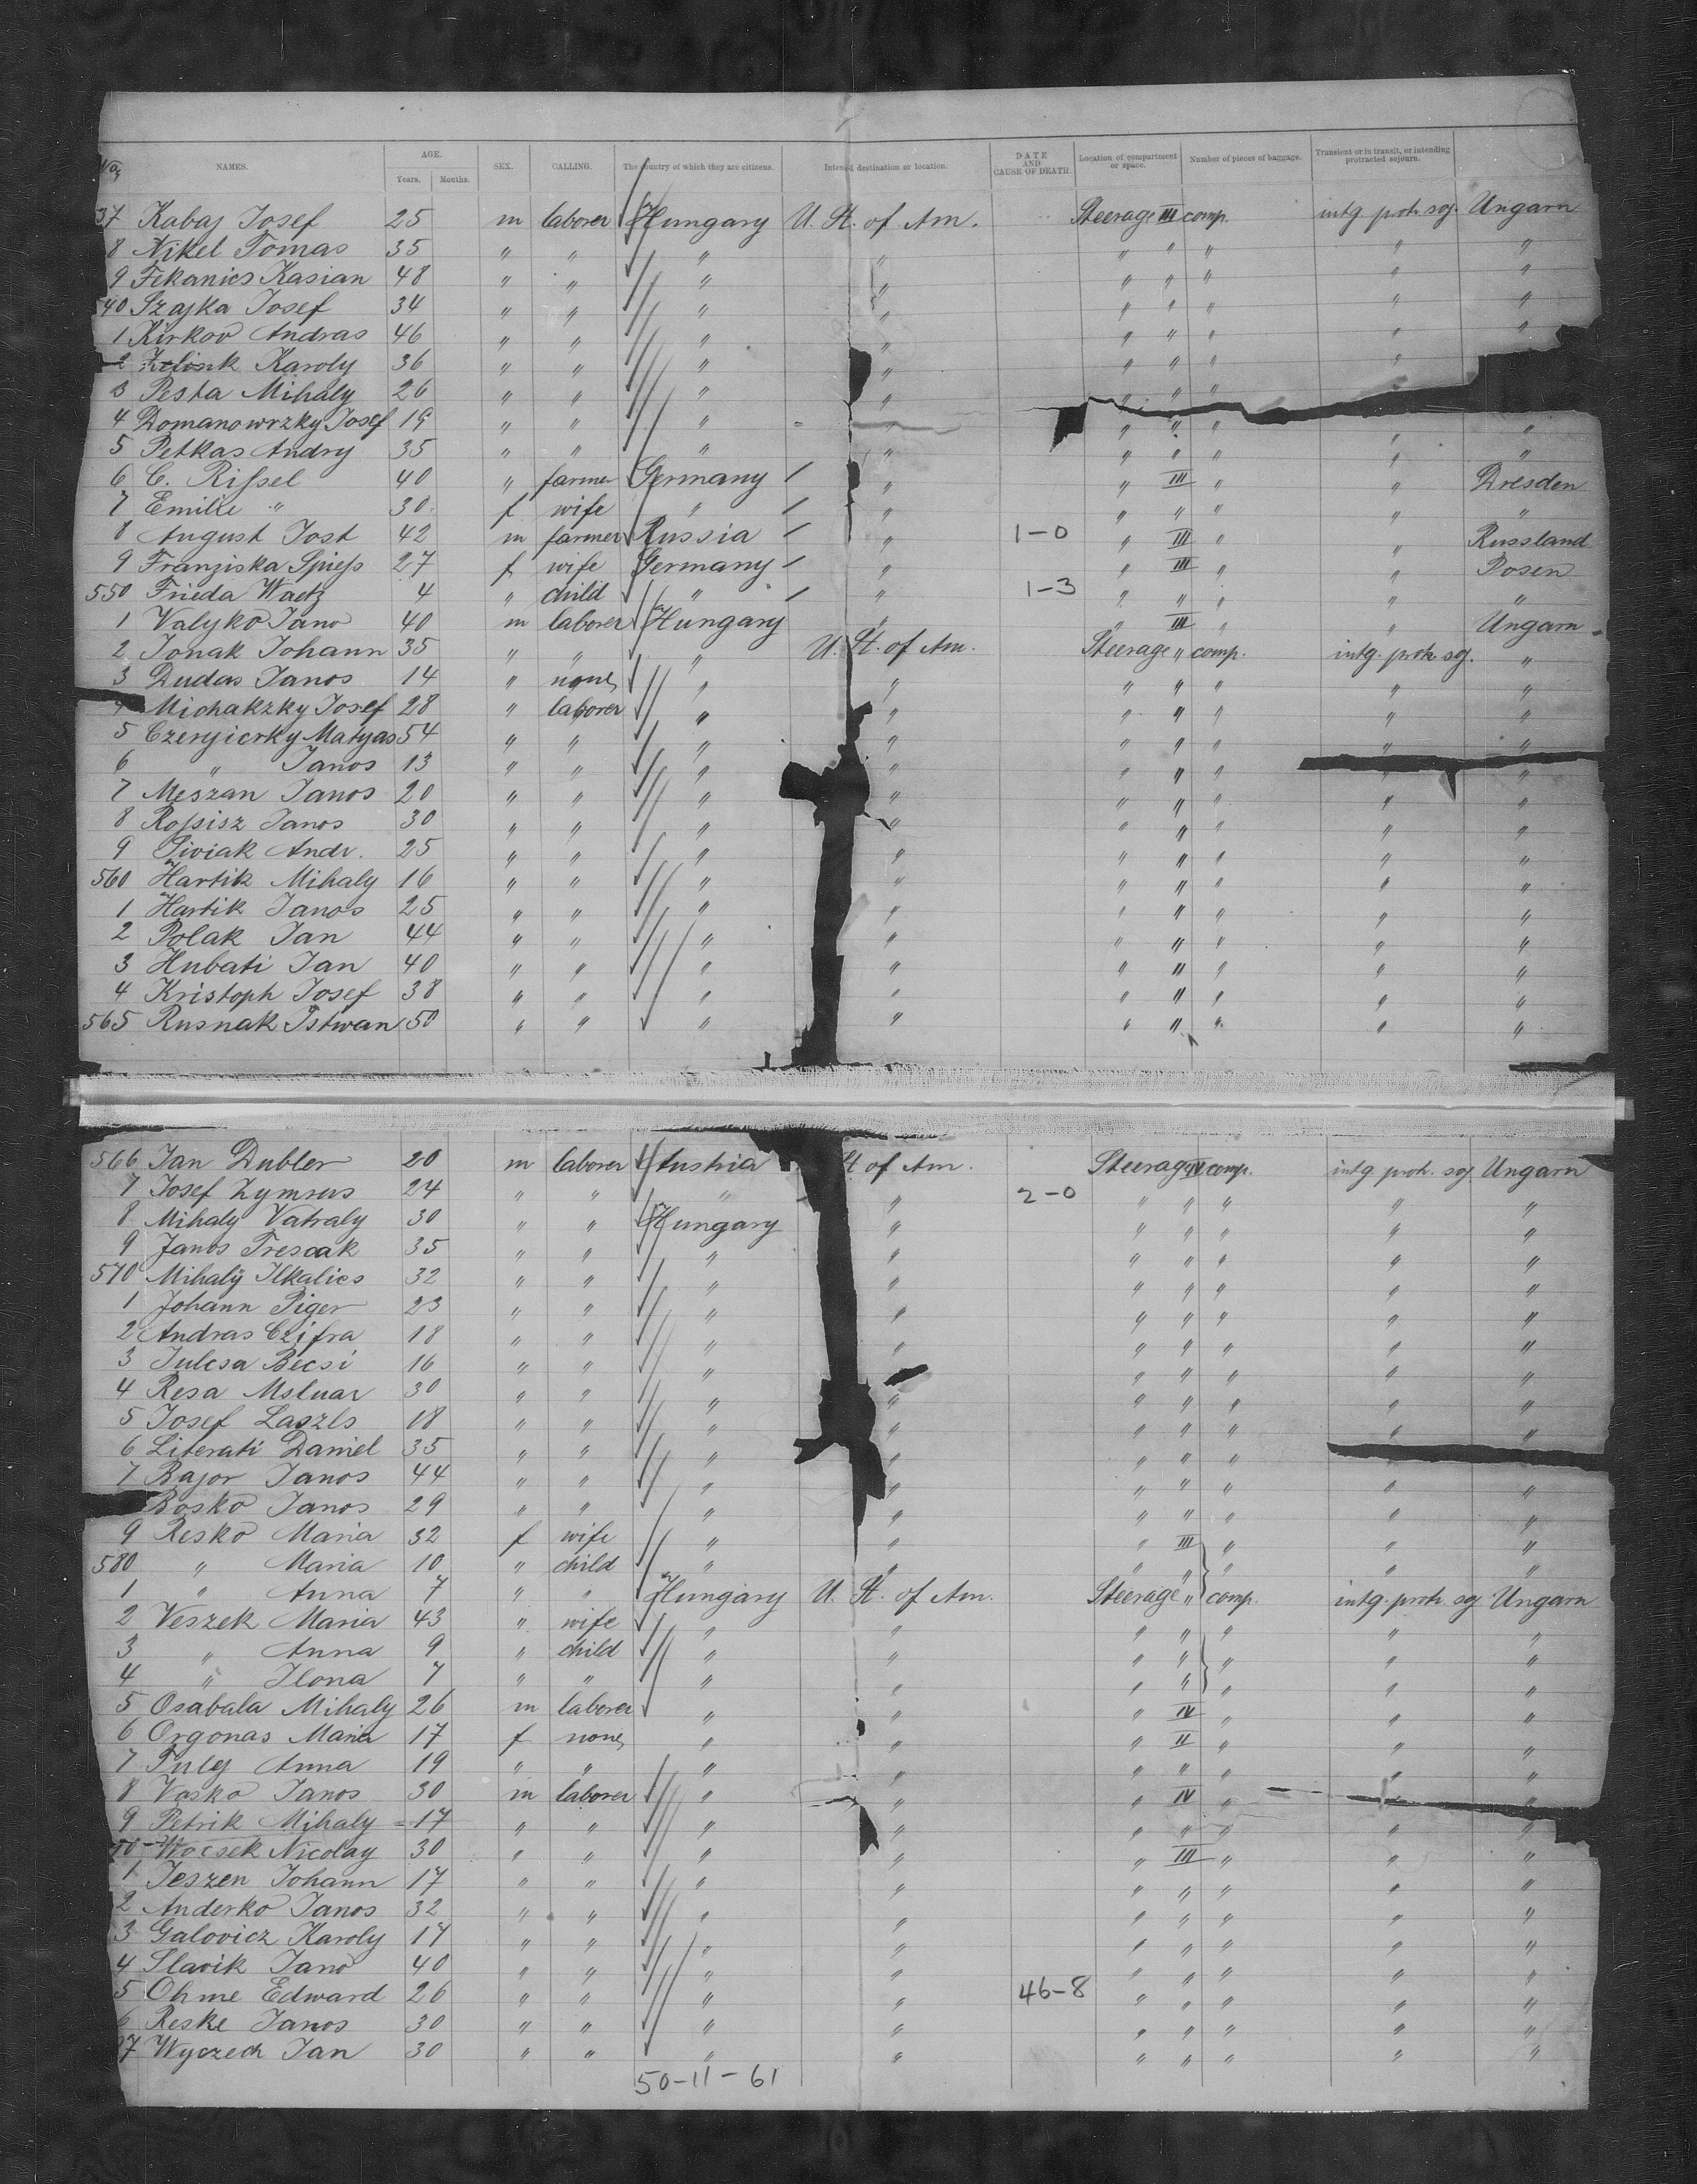 No. NAMES. AGE. Years. Months. SEX. CALLING. The country of which they are citizens. Intended destination or location. DATE AND CAUSE OF DEATH. Location of compartment or space. Number of pieces of baggage. Transient or in transit, or intending protracted sojourn.
37 Kabaj Josef 25 m laborer Hungary U. St. of Am. Steerage III comp. intg. protr. soj. Ungarn
8 Nikel Tomas 35 " " " " " " " " "
9 Fekanics Kasian 48 " " " " " " " " "
40 Szajka Josef 34 " " " " " " " " "
1 Kirkov Andras 46 " " " " " " " " "
2 Karoly 36 " " " " " " " "
3 Pesta Mihaly 26 " " " " " " "
4 Domanowrzky Josef 19 " " " " " " " " "
5 Petkas Andry 35 " " " " " " " " "
6 C. Rissel 40 " farmer Germany " " III " " Dresden
7 Emilie " 30 f wife " " " " " " "
8 August Jost 42 m farmer Russia " 1-0 " III " " Russland
9 Franziska Spiess 27 f wife Germany " " III " " Posen
550 Frieda Waetz 4 " child " " 1-3 " " " " "
1 Valyko Jano 40 m laborer Hungary " " III " " Ungarn
2 Jonak Johann 35 " " " U. St. of Am. Steerage " comp. intg. protr. soj. "
3 Dudas Janos 14 " none " " " " " " "
4 Michakzky Josef 28 " laborer " " " " " " "
5 Czenjicrky Matyas 54 " " " " " " " " "
6 " Janos 13 " " " " " " " " "
7 Meszan Janos 20 " " " " " " " " "
8 Rossisz Janos 30 " " " " " " " " "
9 Siviak Andr. 25 " " " " " " " " "
560 Hartik Mihaly 16 " " " " " " " " "
1 Hartik Janos 25 " " " " " " " " "
2 Polak Jan 44 " " " " " " " " "
3 Hubati Jan 40 " " " " " " " " "
4 Kristoph Josef 38 " " " " " " " " "
565 Rusnak Istwan 50 " " " " " " " " "
566 Jan Dubler 20 m laborer Austria St. of Am. Steerage IV comp. intg. protr. soj. Ungarn
7 Josef Zymrus 24 " " " " 2-0 " " " " "
8 Mihaly Vatraly 30 " " Hungary " " " " " "
9 Janos Trescak 35 " " " " " " " " "
570 Mihalÿ Ilkalics 32 " " " " " " " " "
1 Johann Piger 23 " " " " " " " " "
2 Andras Czifra 18 " " " " " " " " "
3 Julcsa Becsi 16 " " " " " " " " "
4 Resa Msluar 30 " " " " " " " " "
5 Josef Laszls 18 " " " " " " " " "
6 Literati Daniel 35 " " " " " " " " "
7 Bajor Janos 44 " " " " " " " " "
Bosko Janos 29 " " " " " " " " "
9 Resko Maria 32 f wife " " " III " " "
580 " Maria 10 " child " " " " " " "
1 " Anna 7 " " Hungary U. St. of Am. Steerage " comp. intg. protr. soj Ungarn
2 Veszek Maria 43 " wife " " " " " " "
3 " Anna 9 " child " " " " " " "
4 " Ilona 7 " " " " " " " " "
5 Osabala Mihaly 26 m laborer " " " IV " " "
6 Orgonas Maria 17 f none " " " II " " "
7 Puly Anna 19 " " " " " " " " "
8 Vasko Janos 30 m laborer " " " IV " " "
9 Petrik Mihaly 17 " " " " " " " " "
90 Wocsek Nicolay 30 " " " " " III " " "
1 Jeszen Johann 17 " " " " " " " " "
2 Anderko Janos 32 " " " " " " " " "
3 Galovicz Karoly 17 " " " " " " " " "
4 Slavik Jano 40 " " " " " " " " "
5 Ohme Edward 26 " " " " 46-8 " " " " "
6 Reske Janos 30 " " " " " " " " "
97 Wyczech Jan 30 " " " " " " " " "
50-11-61